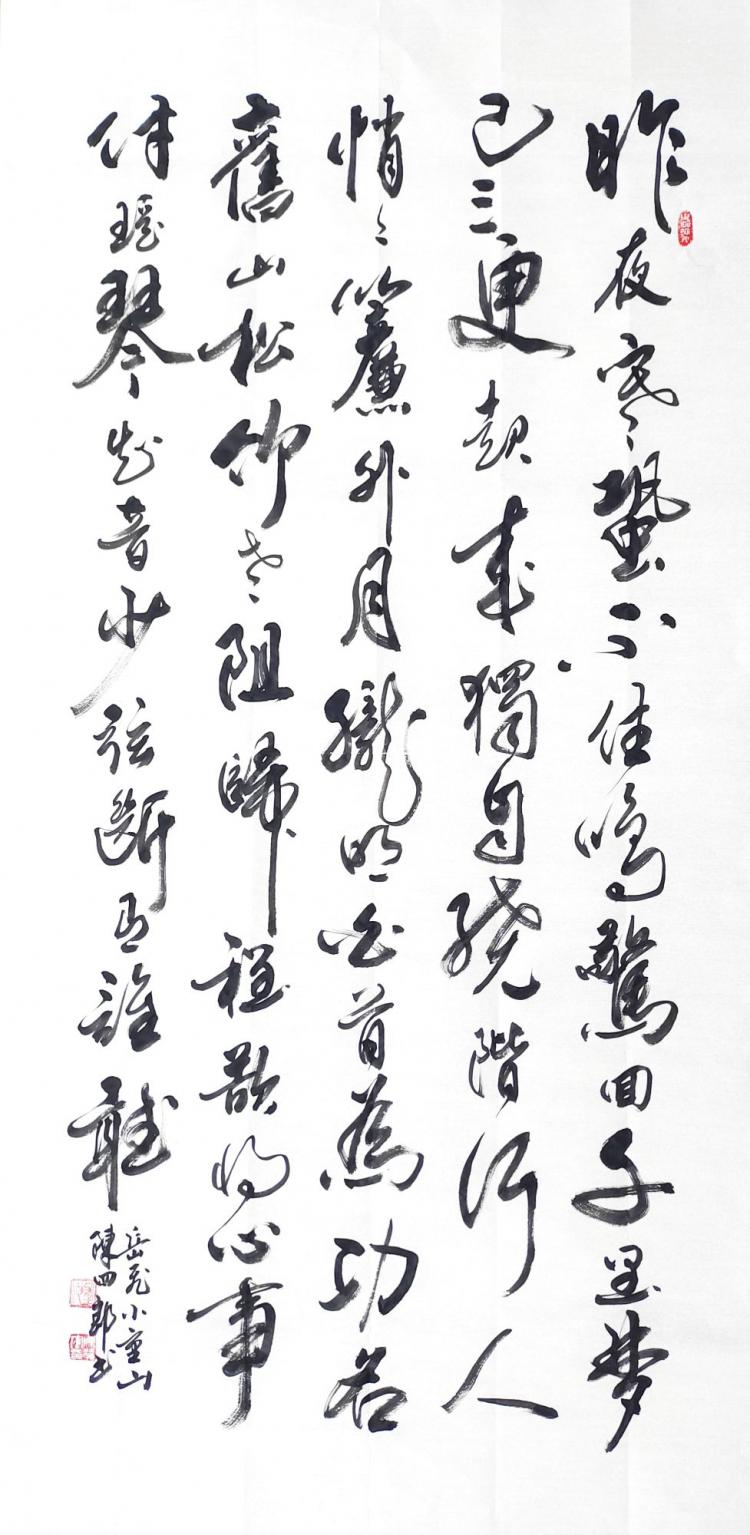 昨夜寒蛩不住鳴驚回千里梦
已三更起来獨自繞階行人
悄々簾外月朧明白首為功名
舊山松竹老阻歸程欲將心事
付瑶琴知音少弦斷有誰聽
岳飛小重山
陳四郎書